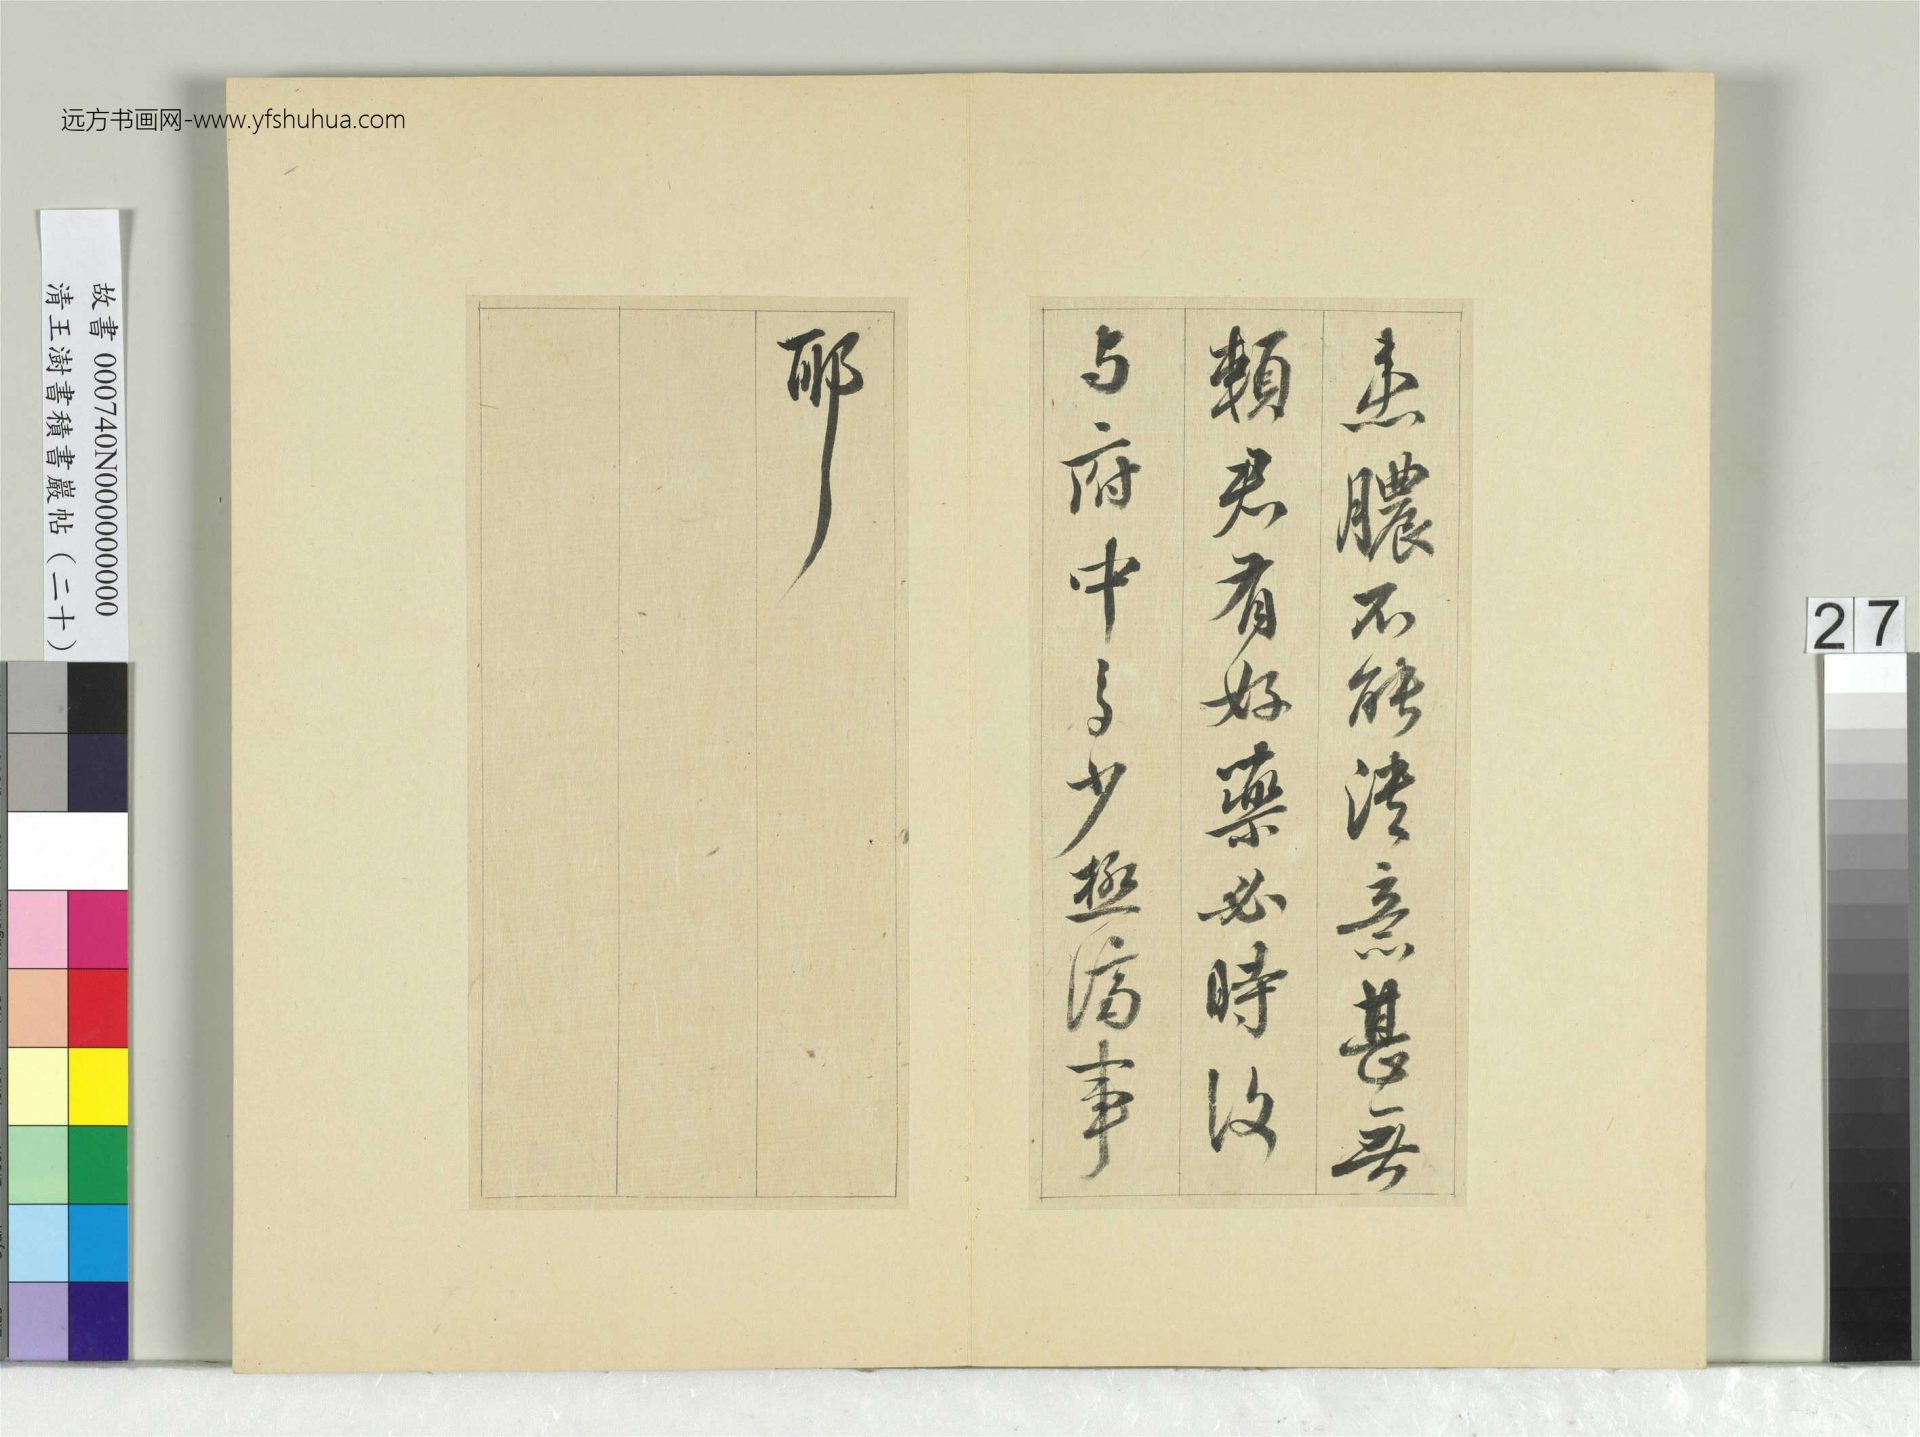 远方书画网-www.yfshuhua.com
故書 000740N000000000
清王澍書積書巖帖（二十）
27
患膿不能潰意甚無
賴君有好藥必時致
与府中多少極濟事
耶